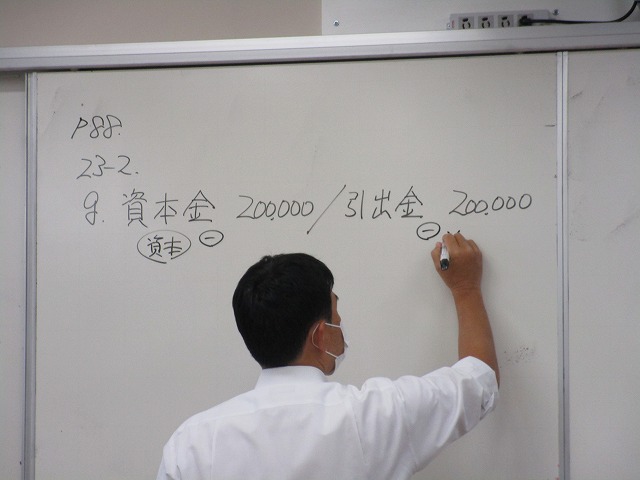 P88.
23-2.
g. 資本金 200,000 / 引出金 200,000
資本 ⊖ ⊖